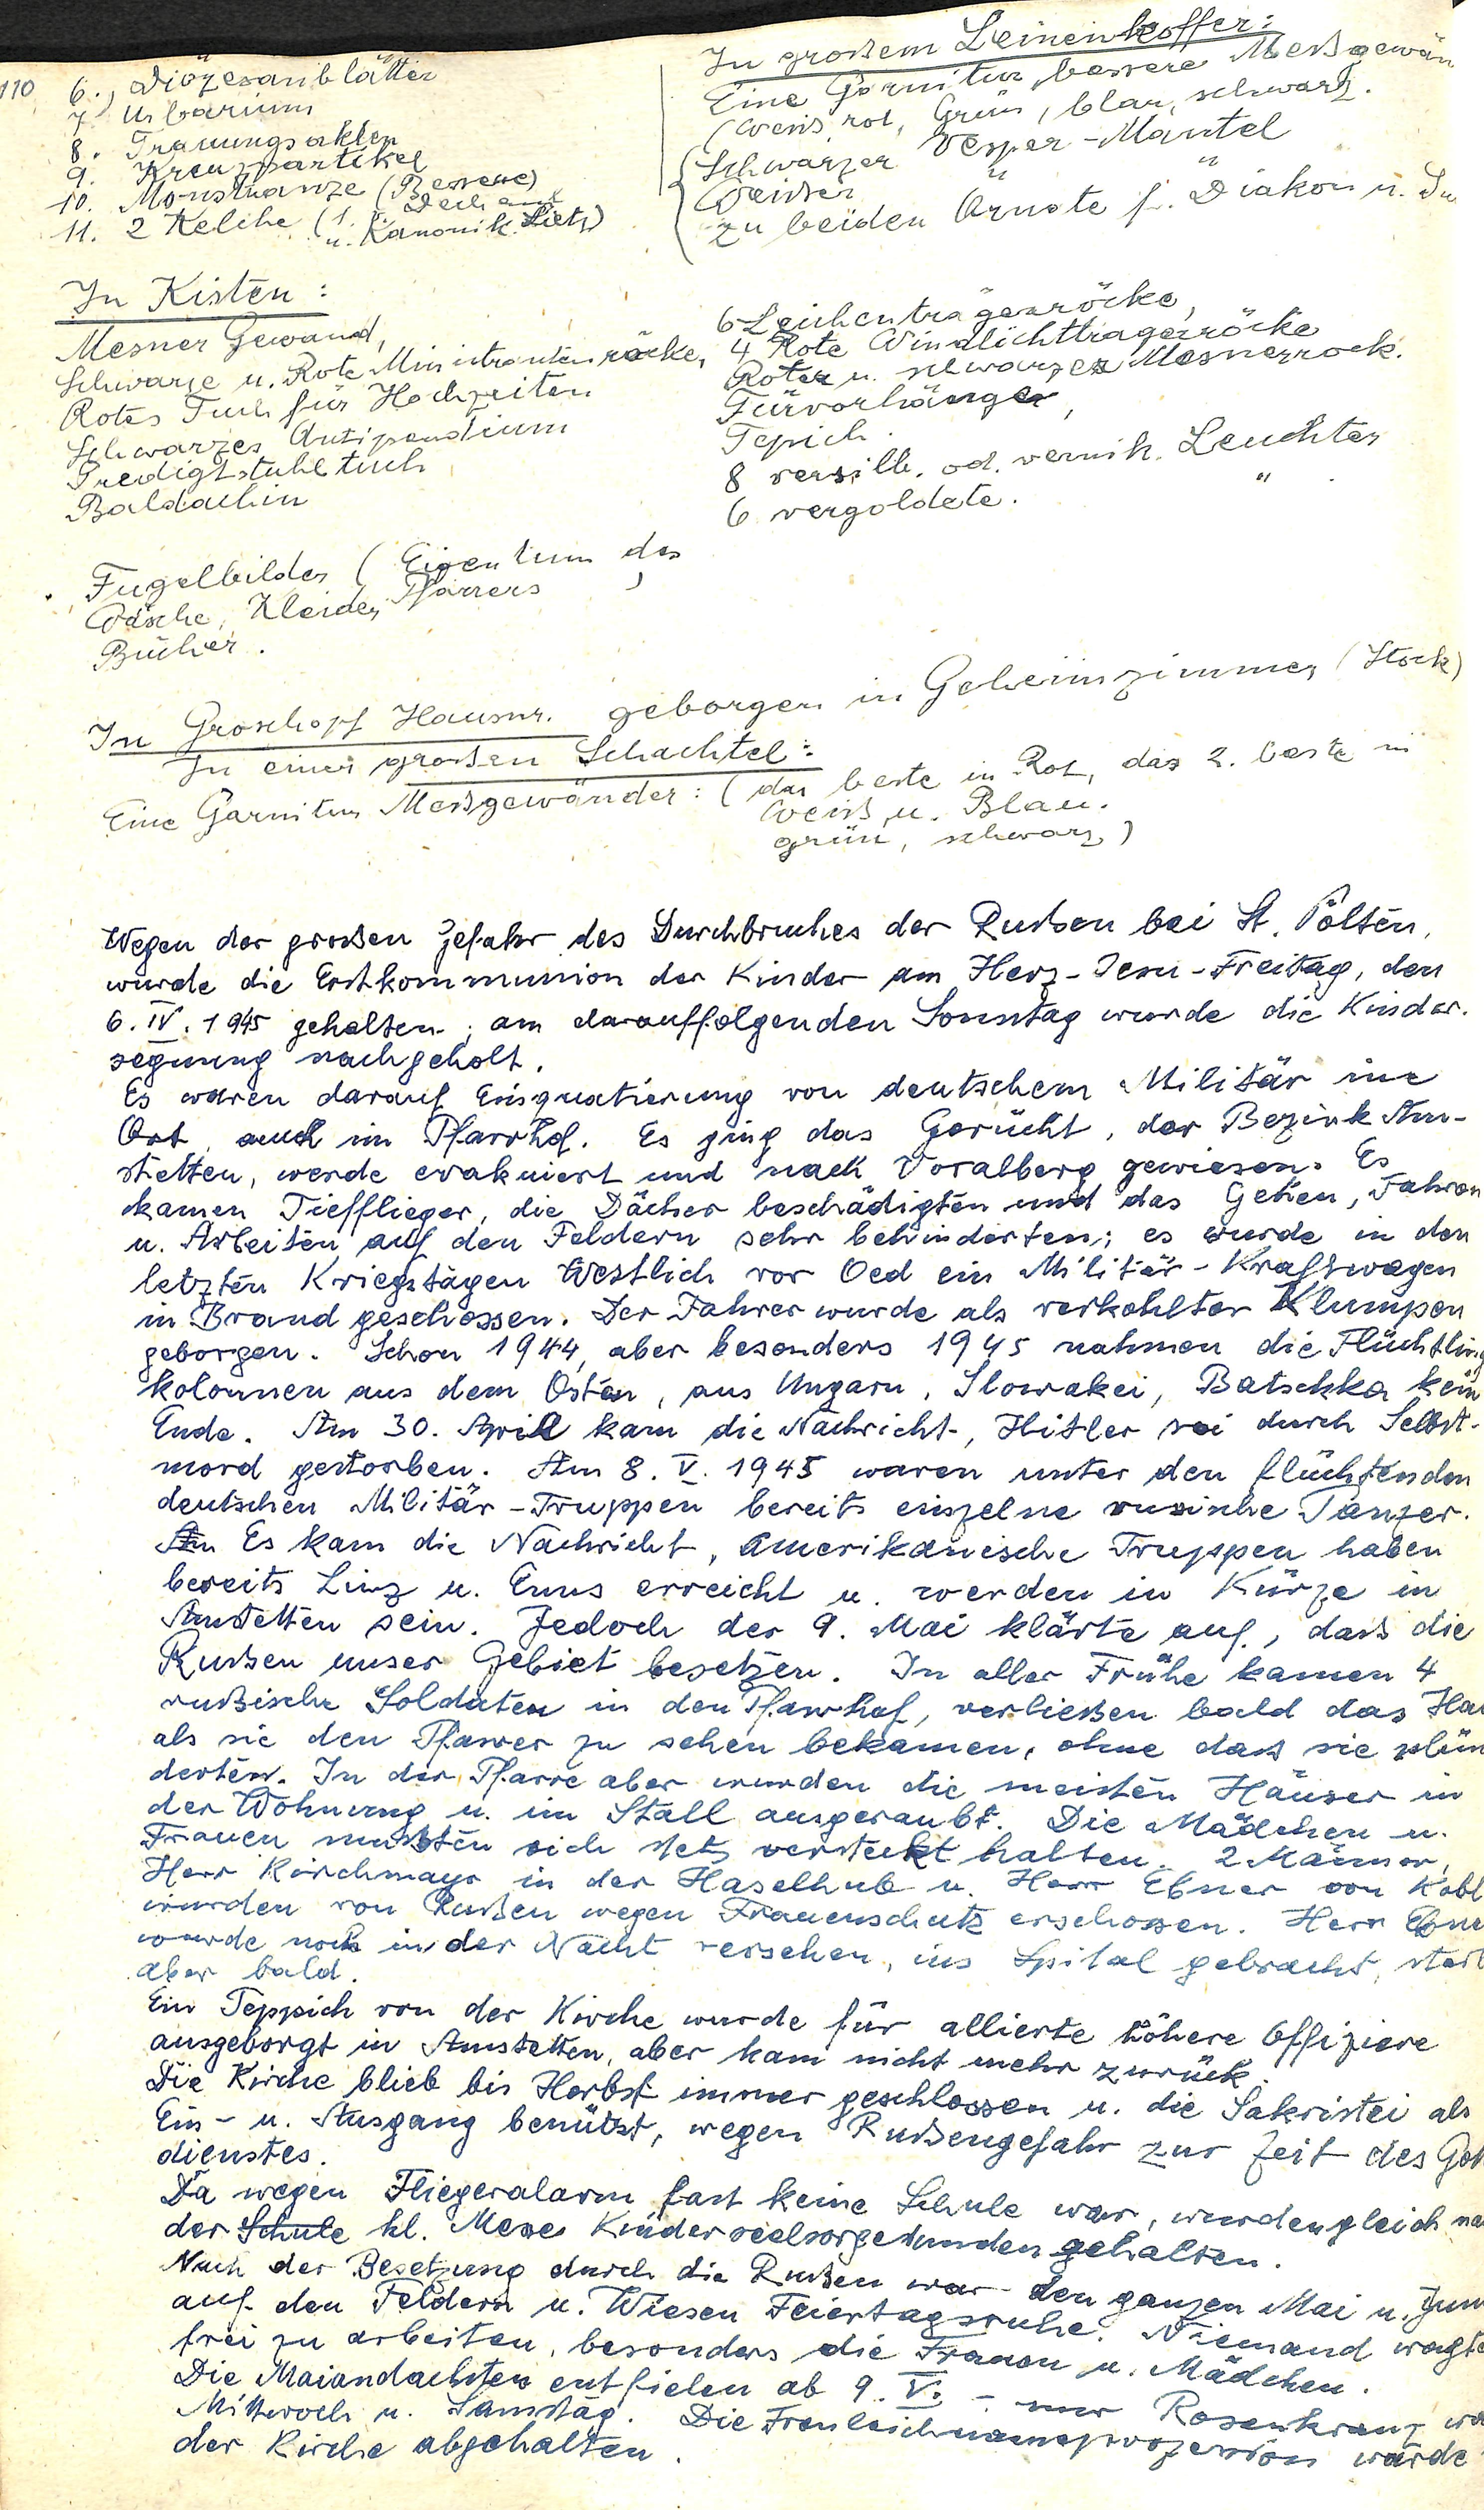 110
6. Diözesanblätter
7 Urbarium
8. Trauungsakten
9. Kreuzpartikel
10. Monstranze (Bessere)
11. 2 Kelche (1. Dechant
u. Kanonik. Lietz)
In großem Leinenkoffer:
Eine Garnitur bessere Meßgewän
(weiß, rot, Grün, blau, schwarz.
Schwarzer Vesper-Mantel
Weißer " "
zu beiden Ornate f. Diakon u. Su
In Kisten:
Mesner Gewand,
Schwarze u. Rote Ministrantenröcke,
Rotes Tuch für Hochzeiten
Schwarzes Antipendium
Predigtstuhltuch
Baldachin
6 Leichenträgerröcke,
4 Rote Windlichttragerröcke
Roter u. schwarzer Mesnerrock.
Türvorhänge,
Tepich.
8 versilb. od. vernik. Leuchter
6 vergoldete. "
Fugelbilder (Eigentum des
Wäsche, Kleider Pfarrers)
Bücher.
In Groschopf Hausnr. geborgen in Geheimzimmer (Stock)
In einer großen Schachtel:
Eine Garnitur Meßgewänder: (das beste in Rot, das 2. beste in
Weiß u. Blau.
grün, schwarz)
Wegen der großen Gefahr des Durchbruches der Rußen bei St. Pölten,
wurde die Erstkommunion der Kinder am Herz-Jesu-Freitag, den
6. IV. 1945 gehalten; am darauffolgenden Sonntag wurde die Kinder-
segnung nachgeholt.
Es waren darauf Einquatierung von deutschem Militär im
Ort, auch im Pfarrhof. Es ging das Gerücht, der Bezirk Am-
stetten, werde evakuiert und nach Voralberg gewiesen. Es
kamen Tiefflieger, die Dächer beschädigten und das Gehen, Fahren
u. Arbeiten auf den Feldern sehr behinderten; es wurde in den
letzten Kriegstagen Westlich vor Oed ein Militär-Kraftwagen
in Brand geschossen. Der Fahrer wurde als verkohlter Klumpen
geborgen. Schon 1944, aber besonders 1945 nahmen die Flüchtling
kolonnen aus dem Osten, aus Ungarn, Slowakei, Batschka kein
Ende. Am 30. April kam die Nachricht, Hitler sei durch Selbst-
mord gestorben. Am 8. V. 1945 waren unter den flüchtenden
deutschen Militär-Truppen bereits einzelne rusische Panzer.
An Es kam die Nachricht, Amerikanische Truppen haben
bereits Linz u. Enns erreicht u. werden in Kürze in
Amstetten sein. Jedoch der 9. Mai klärte auf, daß die
Rußen unser Gebiet besetzen. In aller Frühe kamen 4
rußische Soldaten in den Pfarrhof, verließen bald das Hau
als sie den Pfarrer zu sehen bekamen, ohne daß sie plün
derten. In der Pfarre aber wurden die meisten Häuser in
der Wohnung u. im Stall ausgeraubt. Die Mädchen u.
Frauen mußten sich stets versteckt halten. 2 Männer,
Herr Kirchmayr in der Haselhub u. Herr Ebner von Kobl
wurden von Rußen wegen Frauenschutz erschossen. Herr Ebne
wurde noch in der Nacht versehen, ins Spital gebracht, starb
aber bald.
Ein Teppich von der Kirche wurde für allierte höhere Offiziere
ausgeborgt in Amstetten, aber kam nicht mehr zurück.
Die Kirche blieb bis Herbst immer geschlossen u. die Sakristei als
Ein- u. Ausgang benützt, wegen Rußengefahr zur Zeit des Gott
dienstes.
Da wegen Fliegeralarm fast keine Schule war, wurden gleich na
der Schule hl. Messe Kinderseelsorgestunden gehalten.
Nach der Besetzung durch die Rußen war den ganzen Mai u. Jun
auf den Feldern u. Wiesen Feiertagsruhe. Niemand wagte
frei zu arbeiten, besonders die Frauen u. Mädchen.
Die Maiandachten entfielen ab 9. V. - nur Rosenkranz wa
Mittwoch u. Samstag. Die Fronleichnamsprozession wurde
der Kirche abgehalten.